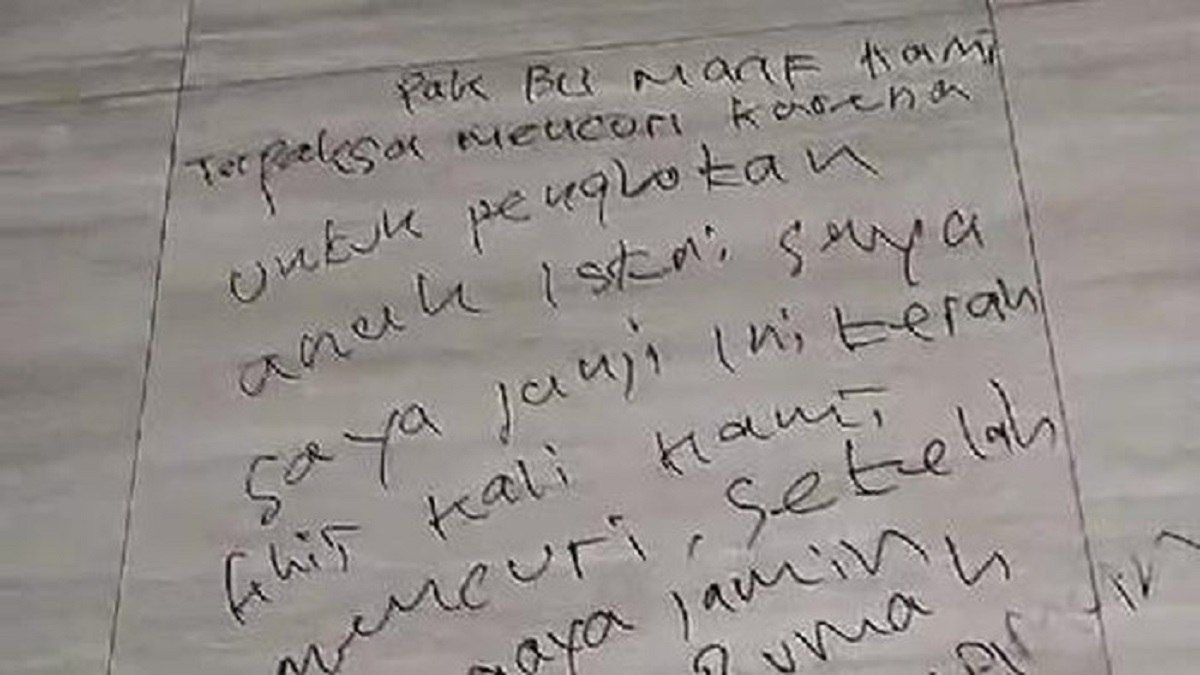 Pak Bu Maaf kami
Terpaksa Mencori karena
untuk pengbotan
anak Istri saya
saya janji ini terah
khir kali kami
mencuri, setelah
saya jamin
Rumah